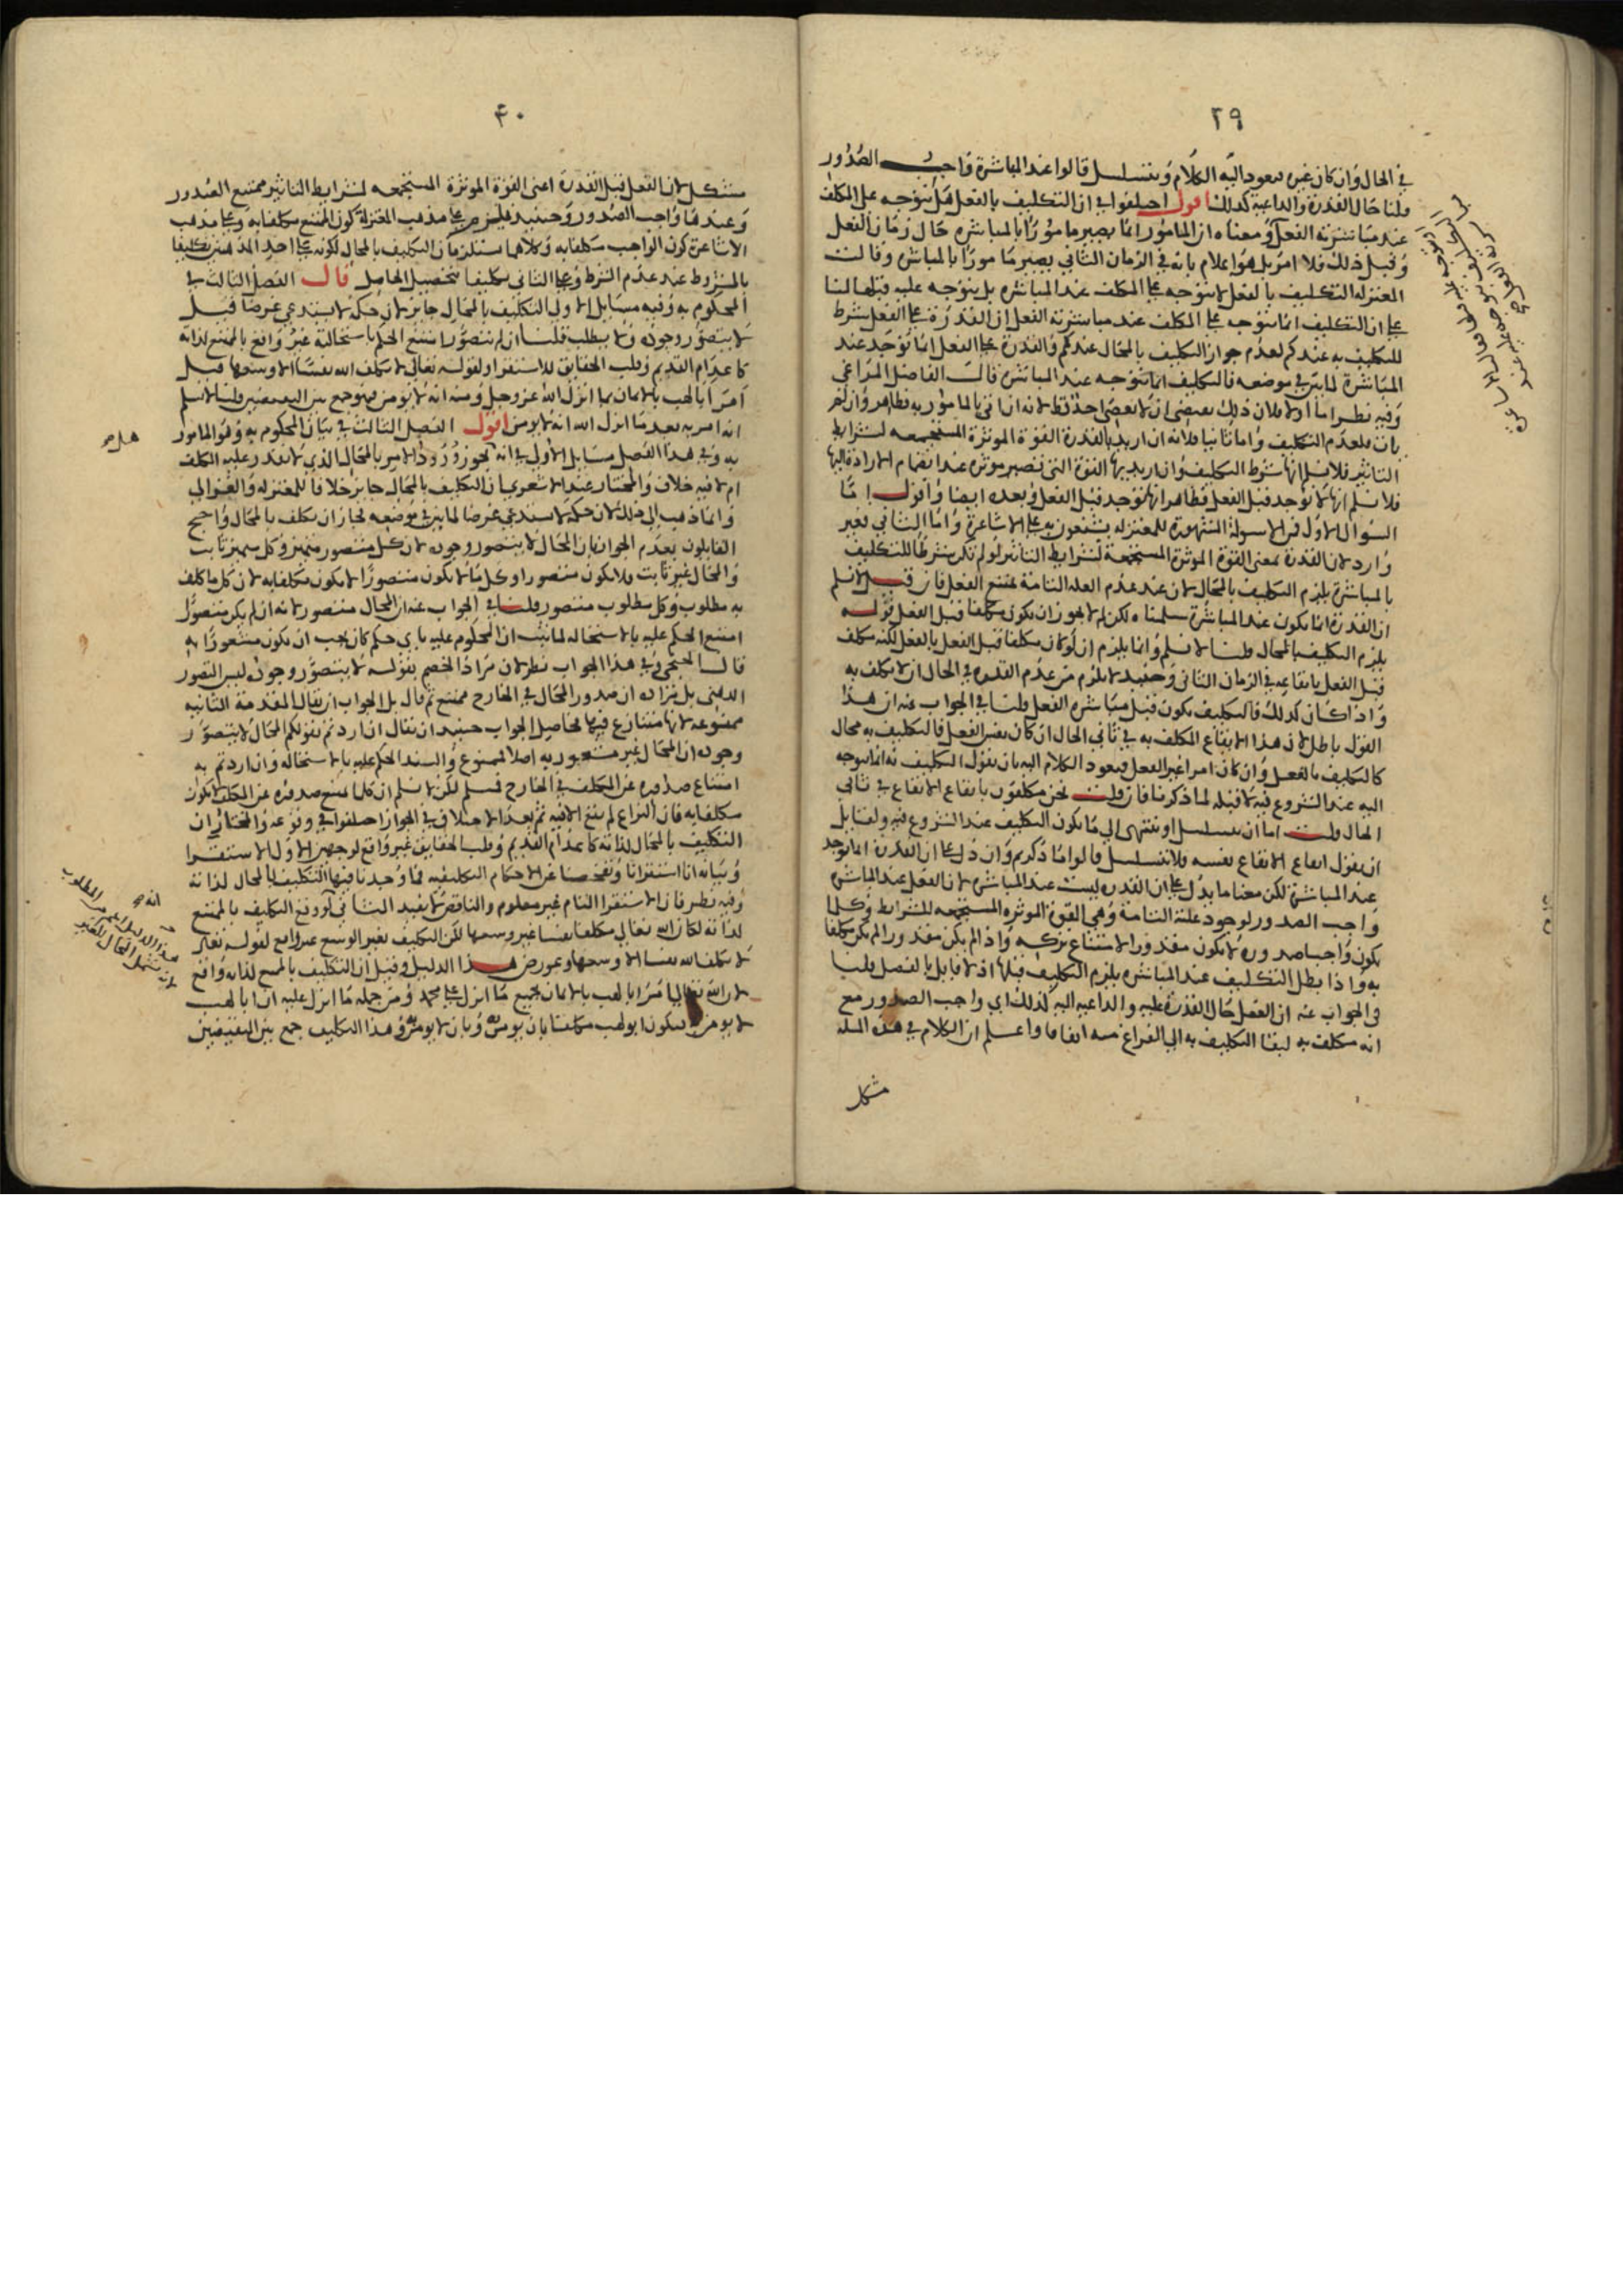 ٣٩
في الحال وان كان غيره فيعود اليه الكلام ويتسلسل قالوا عند المباشرة واجب الصدور
قلنا حال القدرة والداعية كذلك اقول اختلفوا في ان التكليف بالفعل هل يتوجه على المكلف
عند مباشرته الفعل ومعناه ان المامور انما يصير مامورا بالمباشرة حال زمان الفعل
وقبل ذلك فلا امر بل هو اعلام بانه في الزمان الثاني يصير مامورا بالمباشرة وقالت
المعتزلة التكليف بالفعل لا يتوجه على المكلف عند المباشرة بل يتوجه عليه قبلها لنا
على ان التكليف انما يتوجه على المكلف عند مباشرته الفعل ان القدرة على الفعل شرط
للتكليف به عندكم لعدم جواز التكليف بالمحال عندكم والقدرة على الفعل انما توجد عند
المباشرة لما تبين في موضعه فالتكليف انما يتوجه عند المباشرة قال الفاضل المراغي
وفيه نظر اما اولا فلان ذلك يقتضي ان لا يعصي احد قط لانه ان اتى بالمامور به فظاهر وان لم
يات فلعدم التكليف واما ثانيا فلانه ان اريد بالقدرة القوة الموثرة المستجمعة لشرايط
التاثير فلا نسلم انها شرط التكليف وان اريد بها القوة التي تصير موثرة عند انضمام الارادة اليها
فلا نسلم انها لا توجد قبل الفعل فظاهر انها توجد قبل الفعل وبعده ايضا واقول اما
السوال الاول فمن الاسولة المشهورة للمعتزلة يشنعون به على الاشاعرة واما الثاني فغير
وارد لان القدرة بمعنى القوة الموثرة المستجمعة لشرايط التاثير لو لم تكن شرطا للتكليف
بالمباشرة يلزم التكليف بالمحال لان عند عدم العلة التامة يمتنع الفعل فان قيل لا نسلم
ان القدرة انما تكون عند المباشرة سلمناه لكن لم لا يجوز ان يكون مكلفا قبل الفعل قوله
يلزم التكليف بالمحال قلنا لا نسلم وانما يلزم ان لو كان مكلفا قبل الفعل بالفعل لكنه مكلف
قبل الفعل بايقاعه في الزمان الثاني وحينئذ لا يلزم من عدم القدرة في الحال ان لا يكلف به
واذا كان كذلك فالتكليف يكون قبل مباشرة الفعل قلنا في الجواب عنه ان هذا
القول باطل لان هذا الايقاع المكلف به في ثاني الحال ان كان نفس الفعل فالتكليف به محال
كالتكليف بالفعل وان كان امرا غير الفعل فيعود الكلام اليه بان نقول التكليف به انما يتوجه
اليه عند الشروع فيه لا قبله لما ذكرنا فان قلت نحن مكلفون بايقاع الايقاع في ثاني
الحال قلت اما ان يتسلسل او ينتهي الى ما يكون التكليف عند الشروع فيه ولقايل
ان يقول ايقاع الايقاع نفسه فلا يتسلسل قالوا ما ذكرتم وان دل على ان القدرة انما توجد
عند المباشرة لكن معنا ما يدل على ان القدرة ليست عند المباشرة لان الفعل عند المباشرة
واجب الصدور لوجود علته التامة وهي القوة الموثرة المستجمعة للشرايط وكلما
يكون واجبا صدوره لا يكون مقدورا لامتناع تركه واذا لم يكن مقدورا لم يكن مكلفا
به واذا بطل التكليف عند المباشرة يلزم التكليف قبلها اذ لا قايل بالفصل قلنا
في الجواب عنه ان الفعل حال القدرة عليه والداعية اليه كذلك اي واجب الصدور مع
انه مكلف به لبقاء التكليف به الى الفراغ منه اتفاقا واعلم ان الكلام في هذه المسلة
مشكل
٤٠
مشكل لان الفعل قبل القدرة اعني القوة الموثرة المستجمعة لشرايط التاثير ممتنع الصدور
وعندها واجب الصدور وحينئذ فيلزم على مذهب المعتزلة كون الممتنع مكلفا به وعلى مذهب
الاشاعرة كون الواجب مكلفا به وكلاهما يستلزمان التكليف بالمحال لكونه على احد المذهبين تكليفا
بالمشروط عند عدم الشرط وعلى الثاني تكليفا بتحصيل الحاصل قال الفصل الثالث في
المحكوم به وفيه مسايل الاولى التكليف بالمحال جايز لان حكمه لا يستدعي غرضا قيل
لا يتصور وجوده فلا يطلب قلنا ان لم يتصور امتنع الحكم باستحالته غير واقع بالممتنع لذاته
كاعدام القديم وقلب الحقايق للاستقرا ولقوله تعالى لا يكلف الله نفسا الا وسعها قيل
امر ابا لهب بالايمان بما انزل الله عز وجل ومنه انه لا يومن فهو جمع بين النقيضين قلنا لا نسلم
انه امر به بعد ما انزل الله انه لا يومن اقول الفصل الثالث في بيان المحكوم به وهو المامور
به وفي هذا الفصل مسايل الاول في انه هل يجوز ورود الامر بالمحال الذي لا يقدر عليه المكلف
ام لا فيه خلاف والمختار عند الاشعري ان التكليف بالمحال جايز خلافا للمعتزلة والغزالي
وانما ذهب الى ذلك لان حكمه لا يستدعي غرضا لما تبين في موضعه فجاز ان يكلف بالمحال واحتج
القايلون بعدم الجواز بان المحال لا يتصور وجوده لان كل متصور متميز وكل متميز ثابت
والمحال غير ثابت فلا يكون متصورا وكل ما لا يكون متصورا لا يكون مكلفا به لان كل ما كلف
به مطلوب وكل مطلوب متصور قلنا في الجواب عنه ان المحال متصور لانه ان لم يكن متصورا
امتنع الحكم عليه بالاستحالة لما ثبت ان المحكوم عليه باي حكم كان يجب ان يكون مشعورا به
قال الخنجي وفي هذا الجواب نظر لان مراد الخصم بقوله لا يتصور وجوده ليس التصور
الذهني بل مراده ان صدور المحال في الخارج ممتنع ثم قال بل الجواب ان يقال المقدمة الثانية
ممنوعة لانها متنازع فيها فحاصل الجواب حينئذ ان يقال ان اردتم بقولكم المحال لا يتصور
وجوده ان المحال غير مشعور به اصلا فممنوع والسند الحكم عليه بالاستحالة وان اردتم به
امتناع صدوره عن المكلف في الخارج فمسلم لكن لا نسلم ان كلما يمتنع صدوره عن المكلف لا يكون
مكلفا به فان النزاع لم يقع الا فيه ثم بعد الاختلاف في الجواز اختلفوا في وقوعه والمختار ان
التكليف بالمحال لذاته كاعدام القديم وقلب الحقايق غير واقع لوجهين الاول الاستقرا
وبيانه انا استقرانا وتفحصنا عن الاحكام التكليفية فما وجدنا فيها التكليف بالمحال لذاته
وفيه نظر فان الاستقرا التام غير معلوم والناقص لا يفيد الثاني لو وقع التكليف بالممتنع
لذاته لكان الله تعالى مكلفا نفسا غير وسعها لكن التكليف بغير الوسع غير واقع لقوله تعالى
لا يكلف الله نفسا الا وسعها وعورض هذا الدليل وقيل ان التكليف بالممتنع لذاته واقع
لان الله تعالى امر ابا لهب بالايمان بجميع ما انزل على محمد ومن جملة ما انزل عليه ان ابا لهب
لا يومن فيكون ابو لهب مكلفا بان يومن وبان لا يومن وهذا التكليف جمع بين النقيضين
هل صح